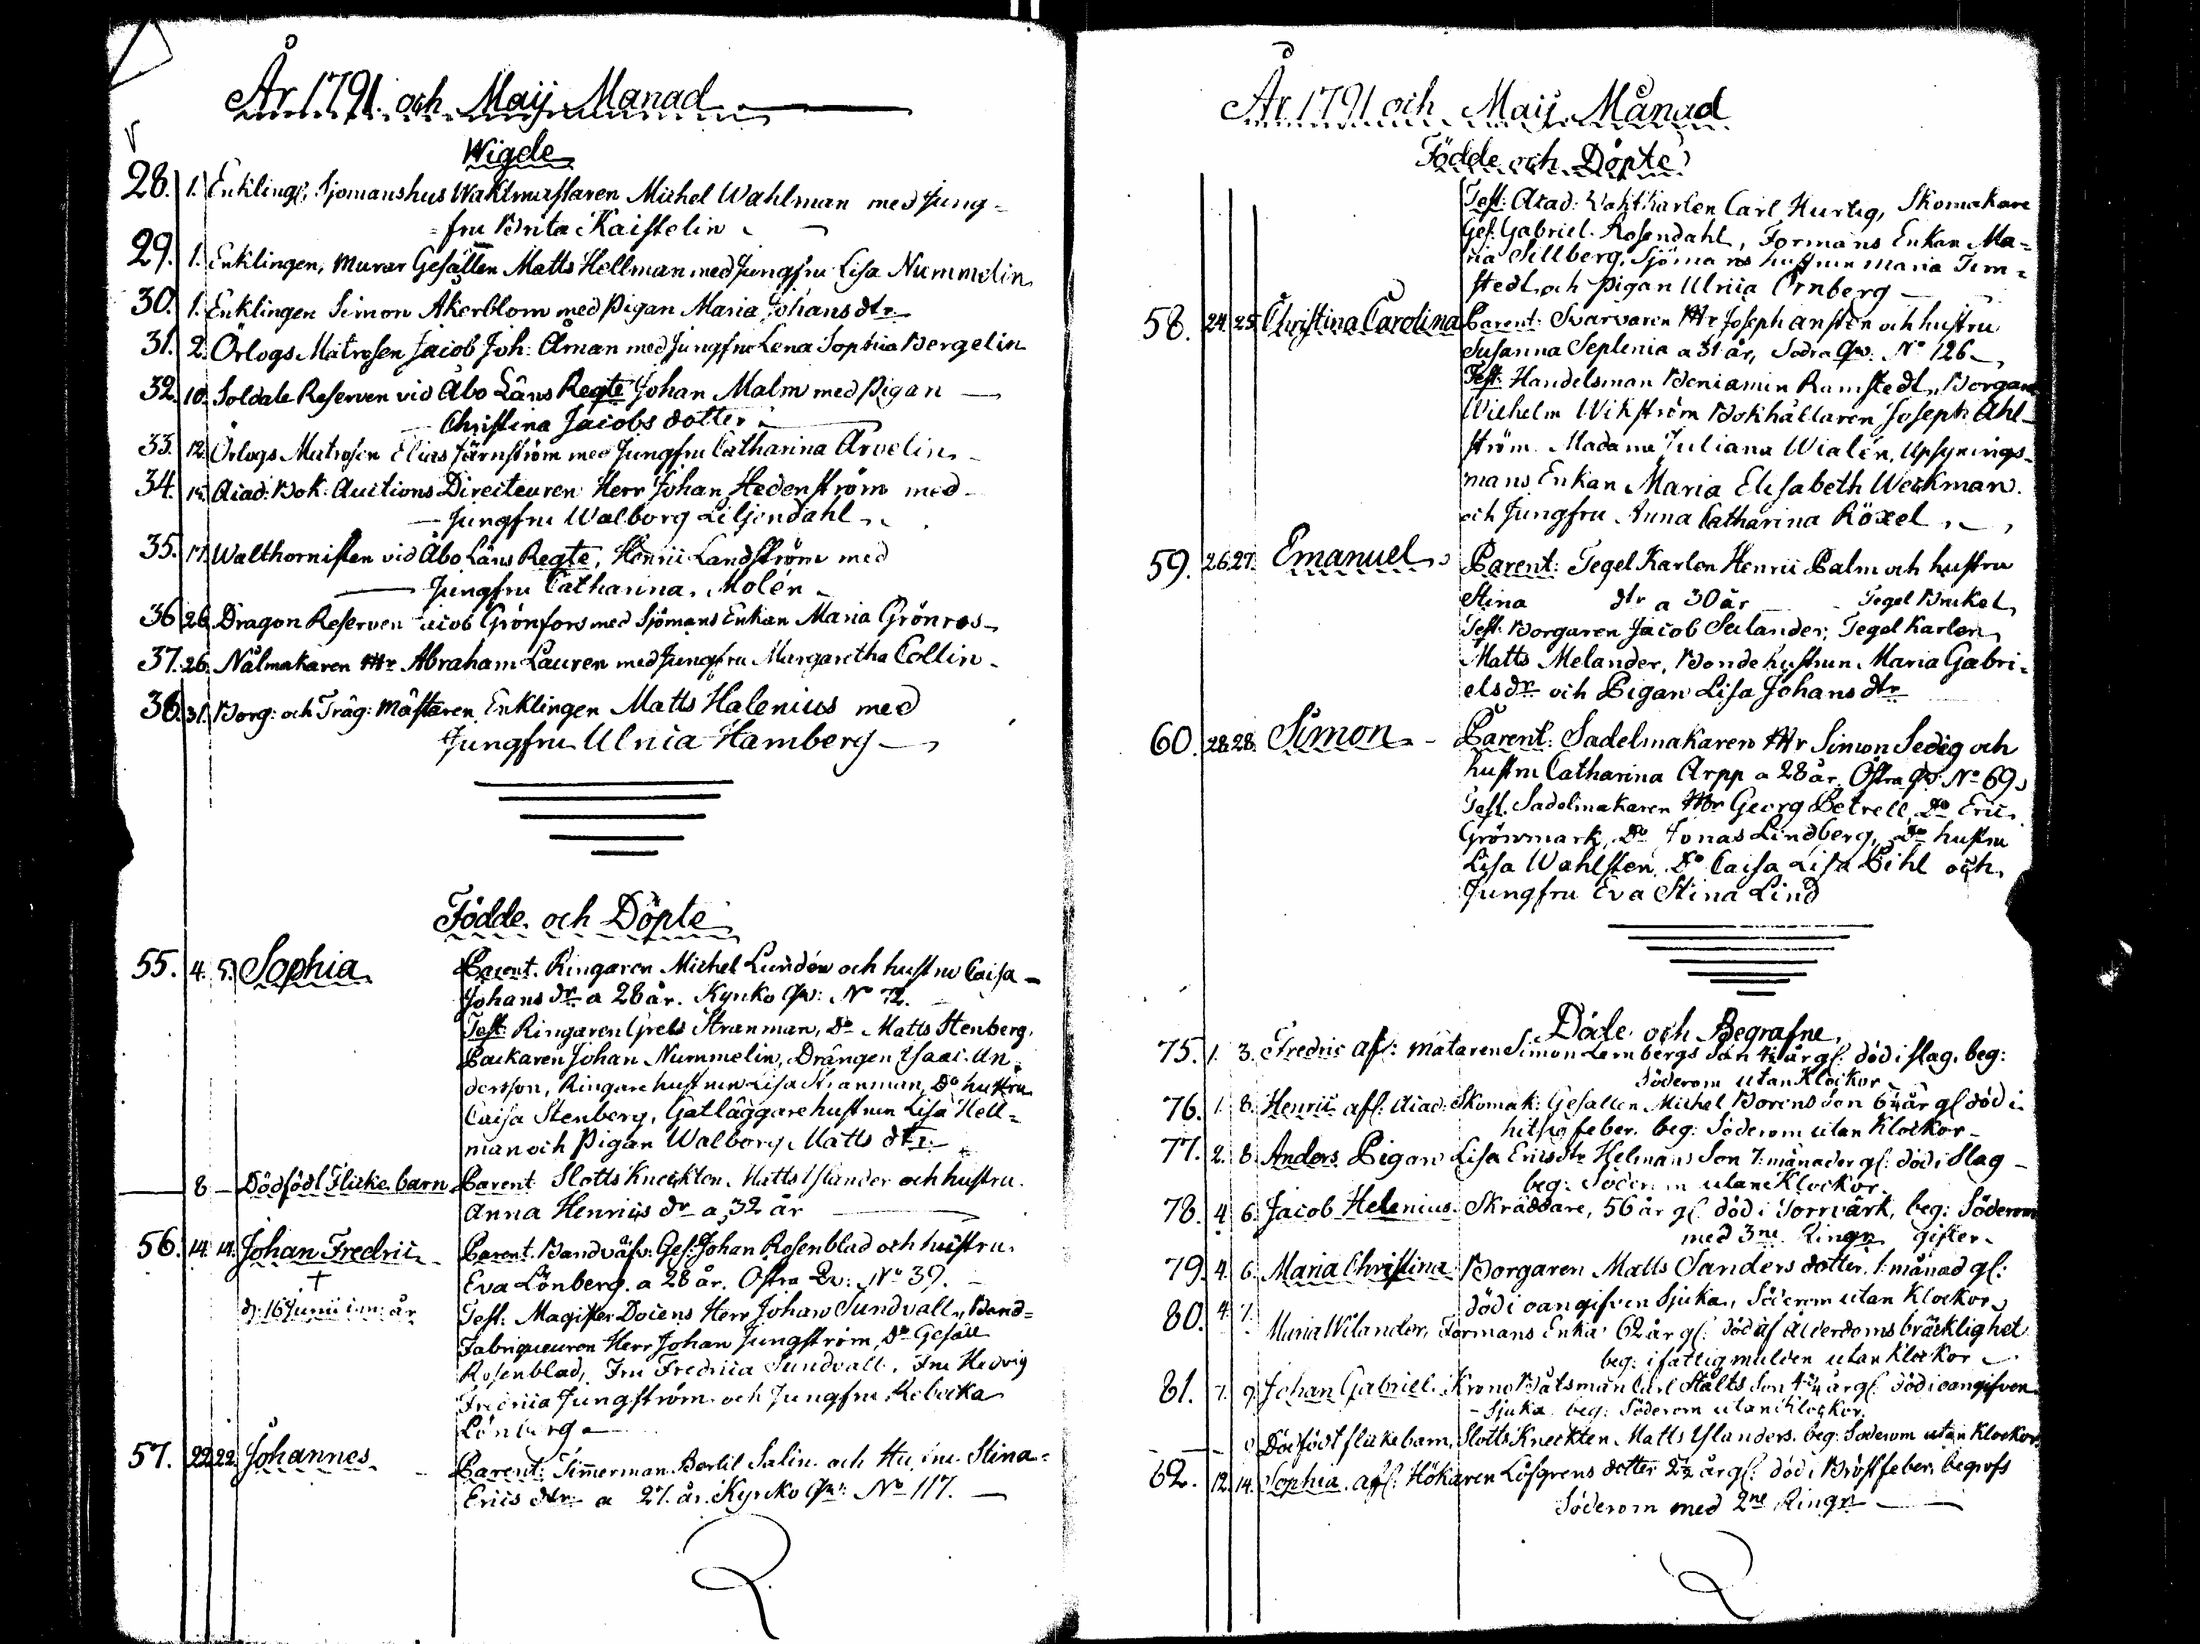 År 1791. och Maij Månad
Wigde
28. 1. Enkling. Sjömanshus Waktmästaren Michel Wahlman med Jung=
=fru Brita Kaistelin
29. 1. Enklingen, Murar Gesällen Matts Hellman med Jungfru Lisa Nummelin
30. 1. Enklingen Simon Åkerblom med Pigan Maria Johans dtr
31. 2. Örlogs Matrosen Jacob Joh: Åman med Jungfru Lena Sophia Bergelin
32. 10. Soldate Reserven vid Åbo Läns Regte Johan Malm med Pigan
Christina Jacobs dotter
33. 12. Örlogs Matrosen Elias Järnström med Jungfru Catharina Arvelin
34. 15. Acad: Bok-Auctions Directeuren Herr Johan Hedenström med
Jungfru Walborg Liljendahl
35. 17. Walthornisten vid Åbo Läns Regte, Henric Landström med
Jungfru Catharina Molén
36 26. Dragon Reserven Jacob Grönfors med Sjömans Enkan Maria Grönros
37. 26. Nålmakaren Mr Abraham Lauren med Jungfru Margaretha Collin
38. 31. Borg: och Träg: Mästaren Enklingen Matts Halenius med
Jungfru Ulrica Hamberg
Födde och Döpte
55. 4. 5. Sophia Parent. Ringaren Michel Lundén och hustru Caisa
Johans dr a 28 år. Kyrko Qv: No 72.
Test: Ringaren Grels Stranman, Do Matts Stenberg,
Packaren Johan Nummelin, Drängen Isaac An=
dersson, Ringare hustrun Lisa Stranman, Do hustru
Caisa Stenberg, Gatläggare hustrun Lisa Hell=
man och Pigan Walborg Matts dtr
8 Dödfödt Flicke barn Parent Slotts Kneckten Matts Islander och hustru
Anna Henrics dr a 32 år
56. 14. 14. Johan Fredric Parent. Bandväfv: Ges: Johan Rosenblad och hustru
Eva Lönberg a 28 år. Östra Qv: No 39.
† d: 16 Junii i m: år Test. Magister Docens Herr Johan Sundvall, Band=
Fabriqueuren Herr Johan Jungström, Do Gesäll
Rosenblad, Fru Fredrica Sundvall, Fru Hedvig
Fredrica Jungström och Jungfru Rebecka
Lönberg
57. 22 22. Johannes Parent: Timmerman Bertil Salin och Hustru Stina
Erics dtr a 27 år. Kyrko Qv: No 117.
År 1791 och Maij Månad
Födde och Döpte
Test: Acad: Vaktkarlen Carl Hurtig, Skomakare
Ges: Gabriel Rosendahl, Formans Enkan Ma=
ria Sillberg, Sjömans hustrun Maria Tim=
stedt och Pigan Ulrica Örnberg
58. 24. 25. Christina Carolina Parent: Svarvaren Mr Joseph Anstén och hustru
Susanna Seplenia a 31 år, Södra Qv: No 126
Test: Handelsman Beniamin Ramstedt, Borgaren
Wilhelm Wikström Bokhållaren Joseph Ahl=
ström. Madame Juliana Wialén, Upsynings=
mans Enkan Maria Elisabeth Weckman
och Jungfru Anna Catharina Röxel
59. 26 27. Emanuel Parent: Tegel Karlen Henric Palm och hustru
Stina dtr a 30 år Tegel Bruket
Test: Borgaren Jacob Selander, Tegel Karlen
Matts Melander, Bonde hustrun Maria Gabri=
els dr och Pigan Lisa Johans dtr
60. 28 28. Simon Parent: Sadelmakaren Mr Simon Sedig och
hustru Catharina Arpp a 28 år. Östra Qv: No 69
Test. Sadelmakaren Mr Georg Petrell, Do Eric
Grönmark, Do Jonas Lindberg, Do hustru
Lisa Wahlsten, Do Caisa Lisa Pihl och
Jungfru Eva Stina Lind
Döde och Begrafne
75. 1. 3. Fredric afl: Mätaren Simon Lernbergs Son 4½ år gl: död i slag, beg:
Söderom utan Klockor
76. 1. 8. Henric afl: Acad: Skomak: Gesällen Michel Borens Son 6¼ år gl död i
hitsig feber. beg: Söderom utan Klockor
77. 2. 8. Anders Pigan Lisa Erics dtr Helmans Son 7 månader gl: död i Slag
beg: Söderom utan Klockor
78. 4. 6. Jacob Helenius Skräddare, 56 år gl död i Torrvärk, beg: Söderom
med 3ne Ringn gifter
79. 4. 6. Maria Christina Borgaren Matts Sanders dotter 1 månad gl:
död i oangifven Sjuka, Söderom utan Klockor
80. 4. 7. Maria Wilander, Formans Enka 62 år gl: död af Ålderdoms bräcklighet
beg: i fattigmullen utan Klockor
81. 7. 9. Johan Gabriel Krono Båtsman Carl Stålts Son 4¾ år gl: död i oangifven
Sjuka beg: Söderom utan Klockor
Dödfödt flickebarn, Slotts Kneckten Matts Islanders. beg: Söderom utan Klockor
82. 12. 14. Sophia afl: Hökaren Löfgrens dotter 2½ år gl: död i Bröstfeber, begrofs
Söderom med 2ne Ringn